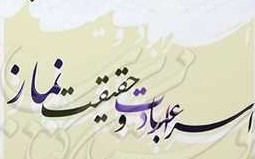 اسرار عبادت و حقیقت نماز